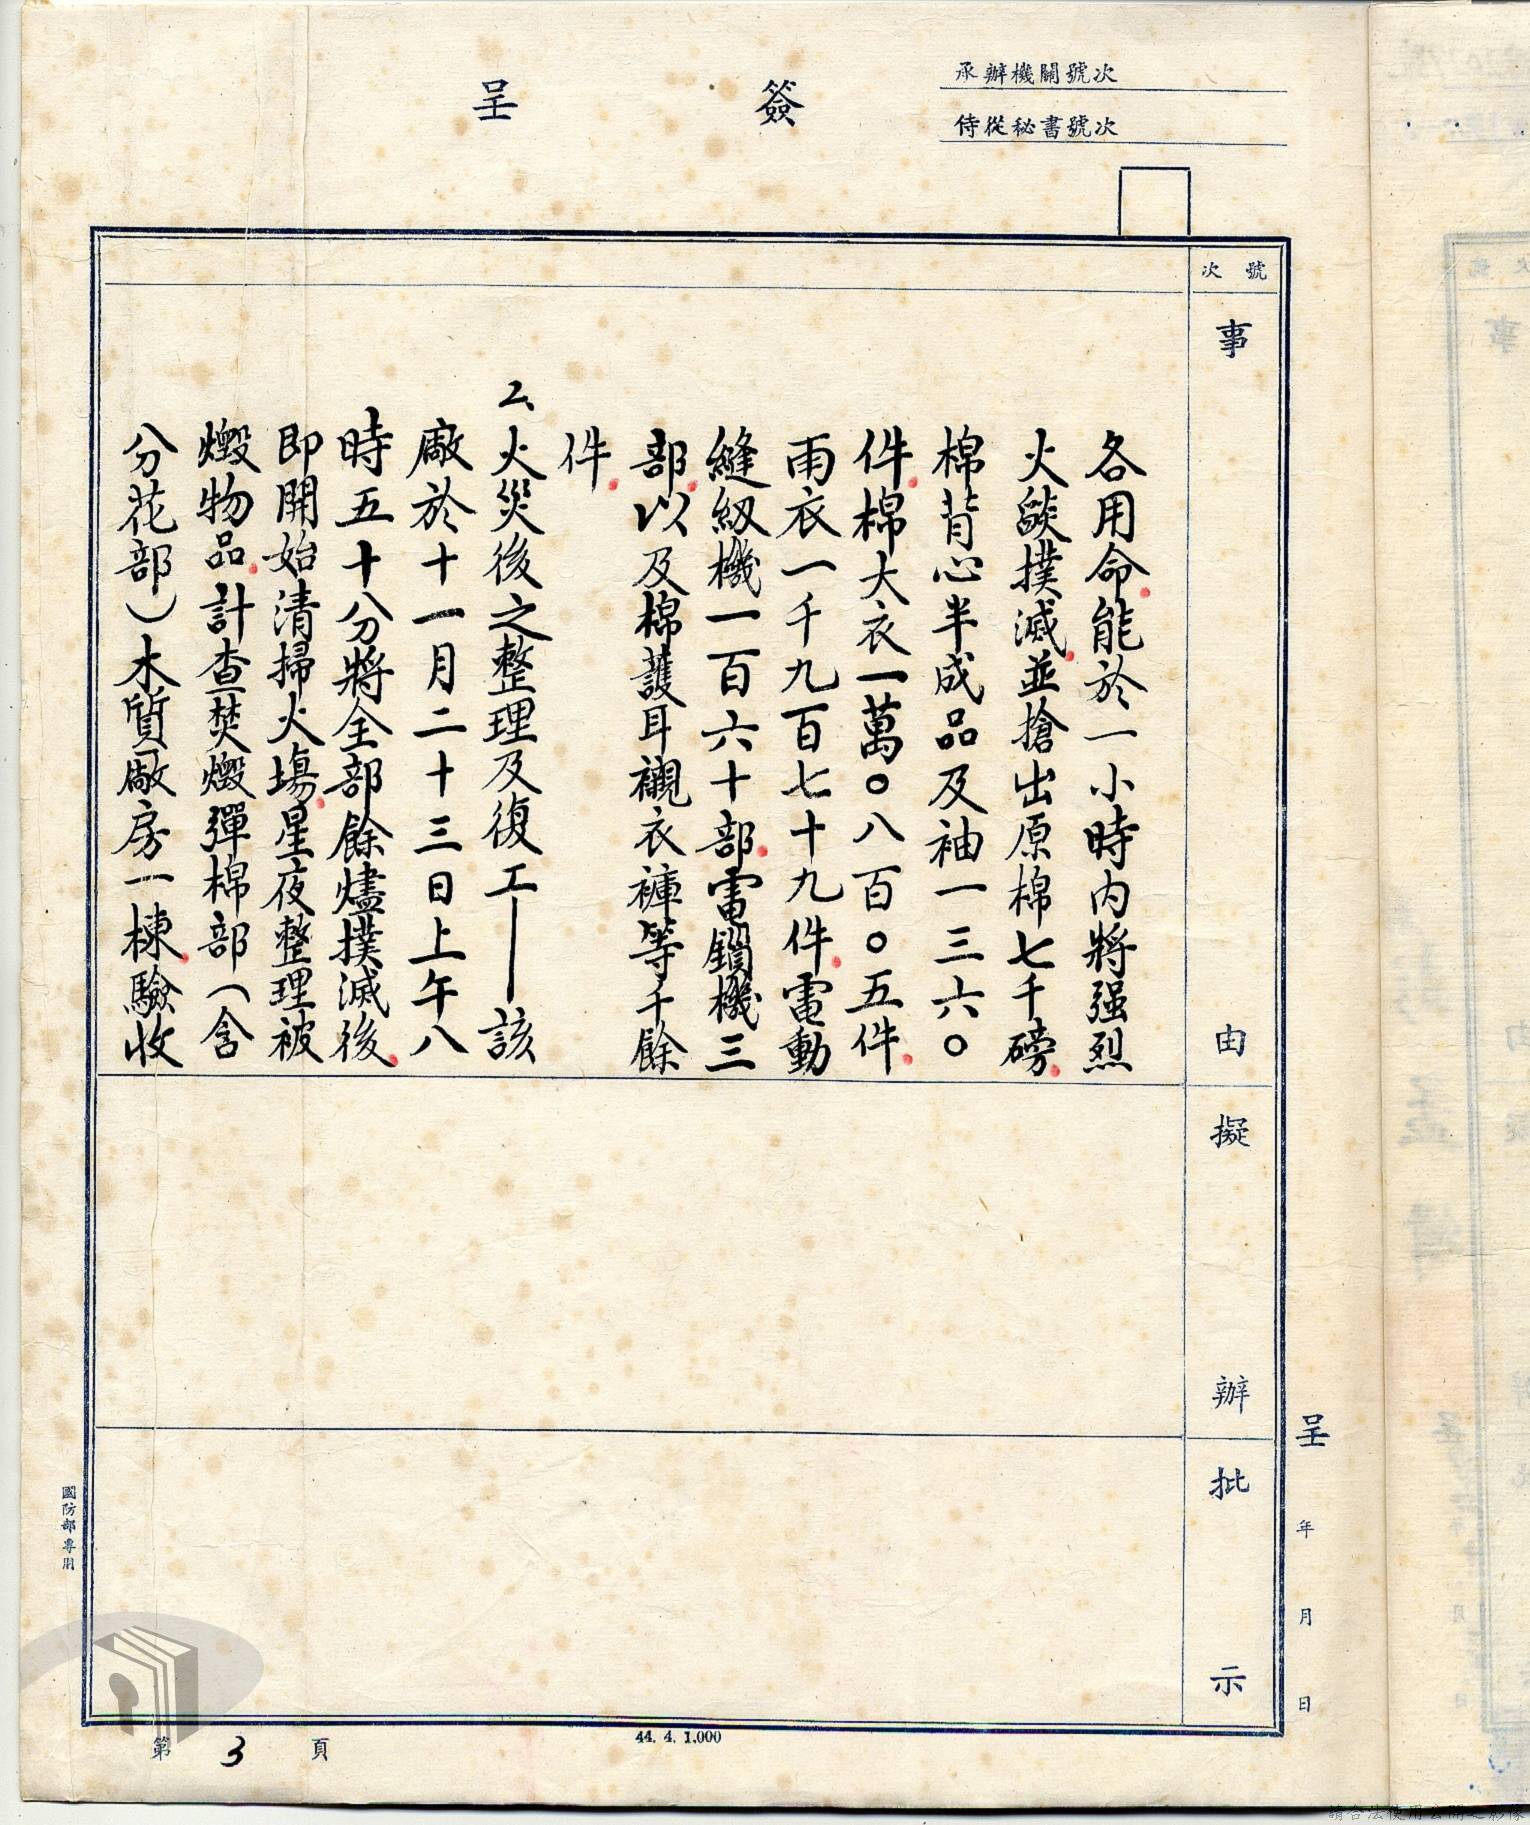 簽呈
承辦機關號次
侍從秘書號次
號次
事由
擬辦
批示
各用命能於一小時內將强烈
火燄撲滅並搶出原棉七千磅
棉背心半成品及袖一三六〇
件棉大衣一萬〇八百〇五件
雨衣一千九百七十九件電動
縫紉機一百六十部電鎖機三
部以及棉護耳襯衣褲等千餘
件
2、火災後之整理及復工——該
廠於十一月二十三日上午八
時五十分將全部餘燼撲滅後
即開始清掃火場星夜整理被
燬物品計查焚燬彈棉部（含
分花部）木質廠房一棟驗收
呈 年 月 日
國防部專用
第3頁
44. 4. 1,000
請合法使用公開之影像